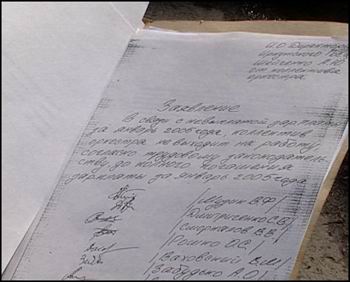 И.О. Директора
от коллектива
оркестра.
Заявление
В связи с невыплатой зарплаты
за январь 2005 года, коллектив
оркестра не выходит на работу,
согласно трудовому законодатель-
ству до полного погашения
зарплаты за январь 2005 года
/Шудик В.Ф/
/Дмитриченко С.В/
/Сморкалов В.В./
/Рошко О.С./
/Ваховский
/Забудько А.О/